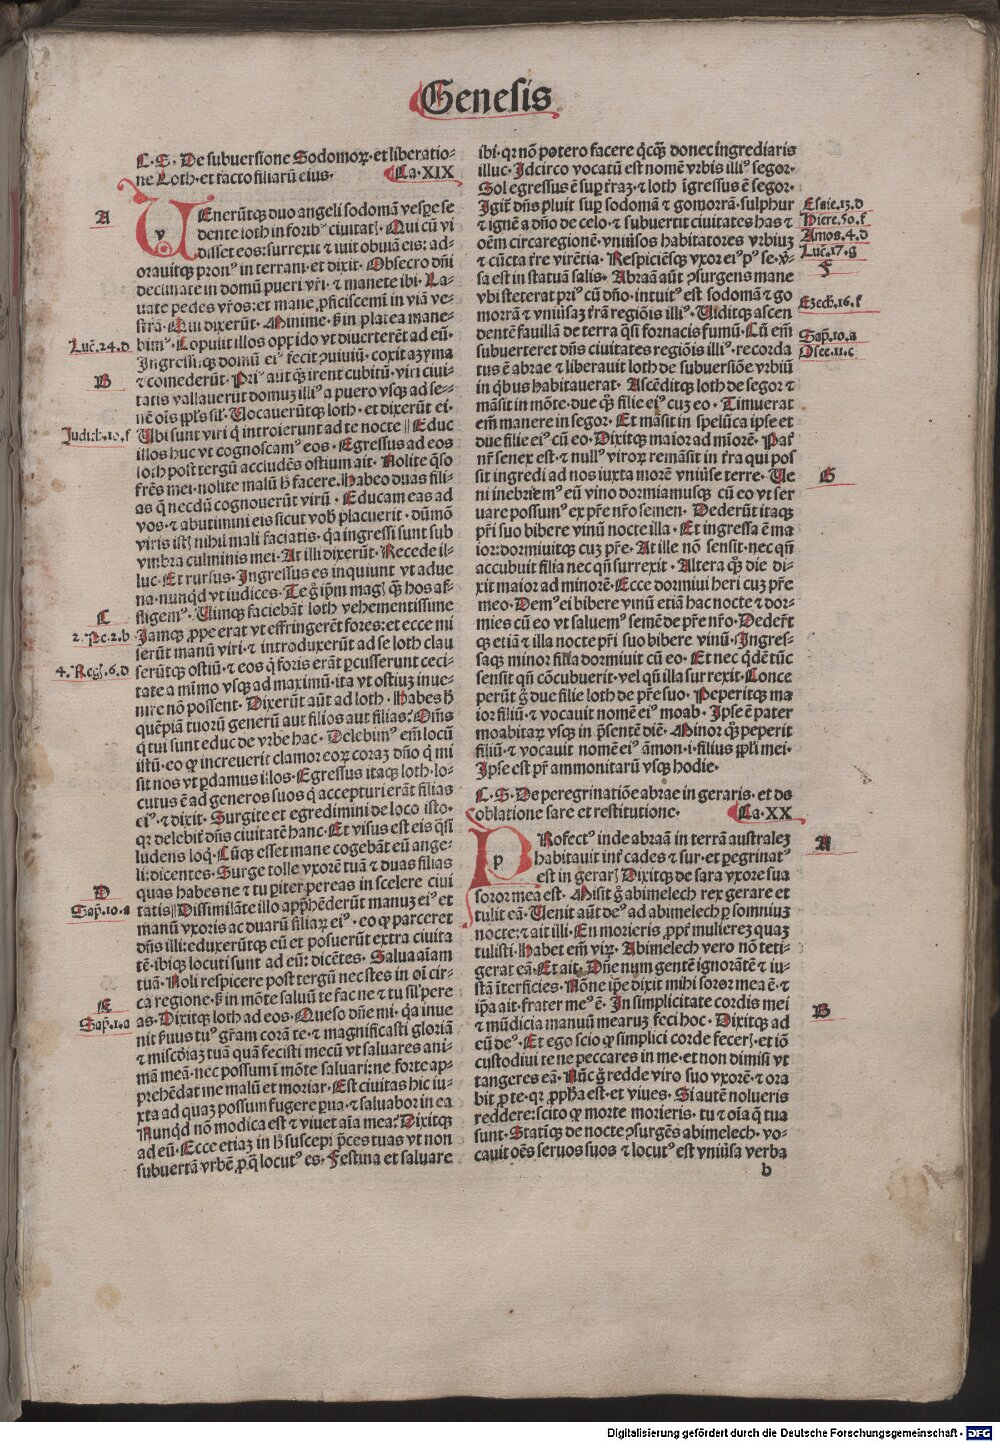 Genesis
C. S. De subuersione Sodomoꝝ. et liberatio-
ne Loth. et facto filiarū eius. Ca. XIX
A
VEnerūtqꝫ duo angeli sodomā vesꝑe se
dente loth in foribꝰ ciuitatꝭ. Qui cū vi
disset eos: surrexit ⁊ iuit obuiā eis: ad-
orauitqꝫ pronꝰ in terram. et dixit. Obsecro dn̄i
declinate in domū pueri vr̄i. ⁊ manete ibi. La-
uate pedes vr̄os: et mane ꝓficiscemī in viā ve-
strā. Qui dixerūt. Minime. sꝫ in platea mane-
Luc̄. 24. d
bimꝰ. Copulit illos opꝑido vt diuerterēt ad eū.
Ingressisqꝫ domū eiꝰ fecit ꝯuiuiū. coxit azyma
B
⁊ comederūt. Priꝰ aut̄ qꝫ irent cubitū. viri ciui-
tatis vallauerūt domuꝫ illiꝰ a puero vsqꝫ ad se-
nē oīs ppl̄s sil̄. Uocauerūtqꝫ loth. et dixerūt ei.
Judic̄. 19. f
Ubi sunt viri q̇ introierunt ad te nocte || Educ
illos huc vt cognoscamꝰ eos. Egressus ad eos
loth post tergū accludēs ostium ait. Nolite q̄so
fr̄es mei. nolite malū hꝫ facere. Habeo duas fili-
as q̄ necdū cognouerūt virū. Educam eas ad
vos. ⁊ abutimini eis sicut vobꝭ placuerit. dūmō
viris istꝭ nihil mali faciatis. q̇a ingressi sunt sub
vmbra culminis mei. At illi dixerūt. Recede il-
luc. Et rursus. Ingressus es inquiunt vt adue
na. nunqͥd vt iudices. Te g̊ ip̄m magꝭ qꝫ hos af-
C
fligemꝰ. Uimqꝫ faciebāt loth vehementissime
2. Pe. 2. b
Jamqꝫ ꝓpe erat vt effringerēt fores: et ecce mi
serūt manū viri. ⁊ introduxerūt ad se loth clau
4. Regꝭ. 6. d
serūtqꝫ ostiū. ⁊ eos q̇ foris erāt ꝑcusserunt ceci-
tate a mīmo vsqꝫ ad maximū. ita vt ostiuꝫ inue-
nire nō possent. Dixerūt aūt ad loth. Habes hꝫ
quēpiā tuorū generū aut filios aut filias: Om̄s
q̇ tui sunt educ de vrbe hac. Delebimꝰ em̄ locū
istū. eo ꝙ increuerit clamor eoꝝ coraꝫ dn̄o q̇ mi
sit nos vt ꝑdamus illos. Egressus itaqꝫ loth. lo-
cutus ē ad generos suos q̇ accepturi erāt filias
eiꝰ. ⁊ dixit. Surgite et egredimini de loco isto.
qꝛ delebit dn̄s ciuitatē hanc. Et visus est eis q̄si
ludens loqͥ. Cūqꝫ esset mane cogebāt eū ange-
li: dicentes. Surge tolle vxorē tuā ⁊ duas filias
D
quas habes ne ⁊ tu ꝑiter pereas in scelere ciui
Sap̄. 10. a
tatis || Dissimilāte illo appꝛehēderūt manuꝫ eiꝰ et
manū vxoris ac duarū filiaꝝ eiꝰ. eo ꝙ parceret
dn̄s illi: eduxerūtqꝫ eū et posuerūt extra ciuita
tē. ibiqꝫ locuti sunt ad eū: dicētes. Salua aīam
tuā. Noli respicere post tergū nec stes in oī cir-
E
ca regione. sꝫ in mōte saluū te fac ne ⁊ tu sil̄ pere
Sap̄. 1. a
as. Dixitqꝫ loth ad eos. Queso dn̄e mi. q̇a inue
nit ẜuus tuꝰ gr̄am corā te. ⁊ magnificasti gloriā
⁊ misc̄diaꝫ tuā quā fecisti mecū vt saluares ani-
mā meā. nec possum ī mōte saluari: ne forte ap-
prehēdat me malū et moriar. Est ciuitas hic iu-
xta ad quaꝫ possum fugere ꝑua. ⁊ saluabor in ea
Nunqͥd nō modica est ⁊ viuet aīa mea? Dixitqꝫ
ad eū. Ecce etiaꝫ in hꝫ suscepi p̄ces tuas vt non
subuertā vrbē ꝓ q̇ locutꝰ es. Festina et saluare
ibi. qꝛ nō potero facere q̇cqꝫ donec ingrediaris
illuc. Idcirco vocatū est nomē vrbis illiꝰ segor.
Sol egressus ē suꝑ t̄raꝫ. ⁊ loth īgressus ē segor.
Igit̄ dn̄s pluit suꝑ sodomā ⁊ gomorrā. sulphur
Esaie. 13. d
⁊ ignē a dn̄o de celo. ⁊ subuertit ciuitates has ⁊
Hiere. 50. f
oēm circa regionē. vniūsos habitatores vrbiuꝫ
Amos. 4. d
⁊ cūcta t̄re virētia. Respiciēsqꝫ vxor eiꝰ pꝰ se. v̄-
Luc̄. 17. g
F
sa est in statuā salis. Abraā aūt ꝯsurgens mane
vbi steterat priꝰ cū dn̄o. intuitꝰ est sodomā ⁊ go
Ezech̄. 16. f
morrā ⁊ vniūsaꝫ t̄rā regiōis illiꝰ. Uiditqꝫ ascen
dentē fauillā de terra q̄si fornacis fumū. Cū em̄
Sap̄. 10. a
subuerteret dn̄s ciuitates regiōis illiꝰ. recorda
Osee. 11. c
tus ē abrae ⁊ liberauit loth de subuersiōe vrbiū
in q̇bus habitauerat. Ascēditqꝫ loth de segor ⁊
māsit in mōte. due qꝫ filie eiꝰ cuꝫ eo. Timuerat
em̄ manere in segor. Et māsit in spelūca ipse et
due filie eiꝰ cū eo. Dixitqꝫ maior ad mīorē. Pat̄
nr̄ senex est. ⁊ nullꝰ viroꝝ remāsit in t̄ra qui pos
sit ingredi ad nos iuxta morē vniūse terre. Ue
G
ni inebriemꝰ eū vino dormiamusqꝫ cū eo vt ser
uare possumꝰ ex pr̄e nr̄o semen. Dederūt itaqꝫ
pr̄i suo bibere vinū nocte illa. Et ingressa ē ma
ior: dormiuitqꝫ cuꝫ pr̄e. At ille nō sensit. nec qn̄
accubuit filia nec qn̄ surrexit. Altera qꝫ die di-
xit maior ad minorē. Ecce dormiui heri cuꝫ pr̄e
meo. Demꝰ ei bibere vinū etiā hac nocte ⁊ dor-
mies cū eo vt saluemꝰ semē de pr̄e nr̄o. Dederūt
qꝫ etiā ⁊ illa nocte pr̄i suo bibere vinū. Ingres-
saqꝫ minor filia dormiuit cū eo. Et nec qͥdē tūc
sensit qn̄ cōcubuerit. vel qn̄ illa surrexit. Conce
perūt g̊ due filie loth de pr̄e suo. Peperitqꝫ ma
ior filiū. ⁊ vocauit nomē eiꝰ moab. Ipse ē pater
moabitaꝝ vsqꝫ in p̄sentē diē. Minor qꝫ peperit
filiū. ⁊ vocauit nomē eiꝰ āmon. i. filius ppl̄i mei.
Ipse est pr̄ ammonitarū vsqꝫ hodie.
C. S. De peregrinatiōe abrae in geraris. et de
oblatione sare et restitutione. Ca. XX
PRofectꝰ inde abraā in terrā australeꝫ
A
habitauit int̄ cades ⁊ sur. et ꝑegrinatꝰ
est in gerarꝭ Dixitqꝫ de sara vxore sua
soror mea est. Misit g̊ abimelech rex gerare et
tulit eā. Uenit aūt deꝰ ad abimelech ꝑ somniuꝫ
nocte: ⁊ ait illi. En morieris ꝓpt̄ mulierez quaꝫ
tulisti. Habet em̄ viꝝ. Abimelech vero nō teti-
gerat eā. Et ait. Dn̄e num gentē ignorātē ⁊ iu-
stā īterficies. Nōne ip̄e dixit mihi soror mea ē. ⁊
ip̄a ait. frater meꝰ ē. In simplicitate cordis mei
B
⁊ mūdicia manuū mearuꝫ feci hoc. Dixitqꝫ ad
eū deꝰ. Et ego scio ꝙ simplici corde fecerꝭ. et iō
custodiui te ne peccares in me. et non dimisi vt
tangeres eā. Nūc g̊ redde viro suo vxorē. ⁊ ora
bit ꝓ te. qꝛ ꝓph̄a est. et viues. Si autē nolueris
reddere: scito ꝙ morte morieris. tu ⁊ oīa q̄ tua
sunt. Statīqꝫ de nocte ꝯsurgēs abimelech. vo-
cauit oēs seruos suos ⁊ locutꝰ est vniūsa verba
b
Digitalisierung gefördert durch die Deutsche Forschungsgemeinschaft - DFG